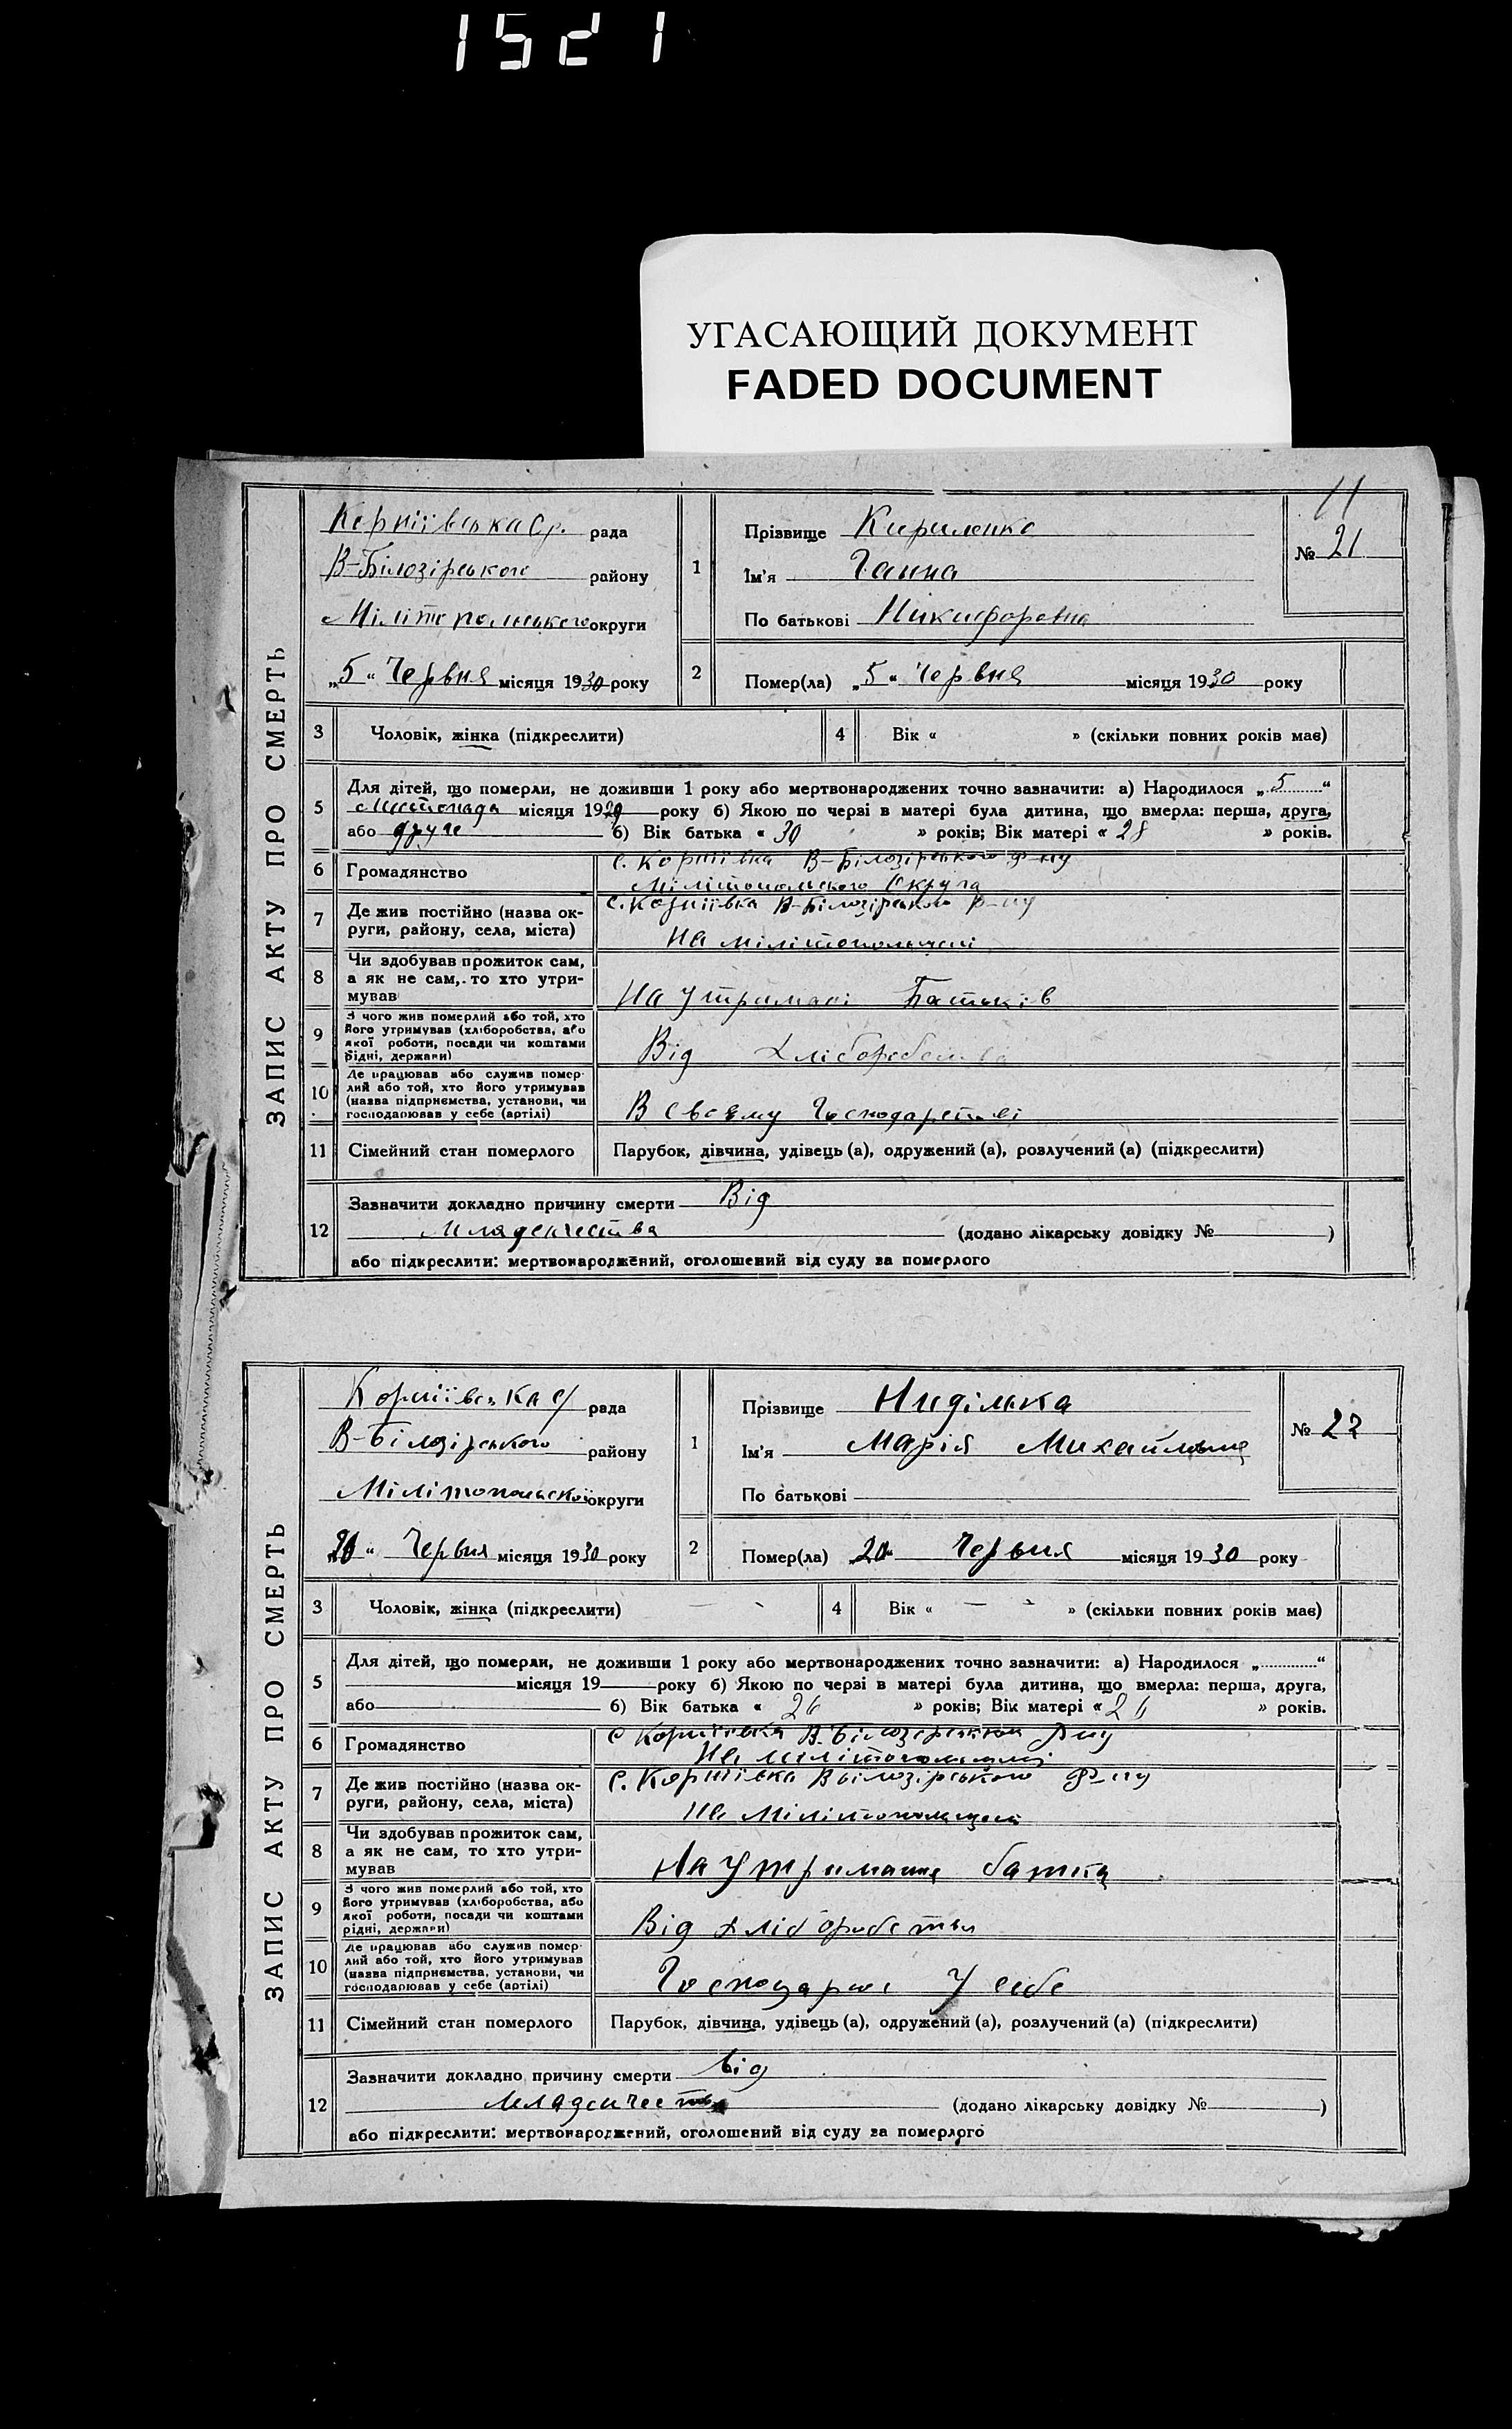 1521
УГАСАЮЩИЙ ДОКУМЕНТ
FADED DOCUMENT
11
ЗАПИС АКТУ ПРО СМЕРТЬ
рада
В-Білозірського району
Мілітопольського округи
„5“ Червня місяця 1930 року
1
Прізвище Кириленко
Ім'я Ганна
По батькові Никифоровна
№ 21
2
Помер(ла) „5“ Червня місяця 1930 року
3 Чоловік, жінка (підкреслити)
4 Вік « » (скільки повних років має)
5
Для дітей, що померли, не доживши 1 року або мертвонароджених точно зазначити: а) Народилося „5“
Листопада місяця 1929 року б) Якою по черзі в матері була дитина, що вмерла: перша, друга,
або друге б) Вік батька « 30 » років; Вік матері « 28 » років.
6 Громадянство
В-Білозірського р-ну
Мілітопольського Округа
7 Де жив постійно (назва ок-
руги, району, села, міста)
В-Білозірського р-ну
На Мілітопольщині
8 Чи здобував прожиток сам,
а як не сам, то хто утри-
мував
На утримані Батьків
9 З чого жив померлий або той, хто
його утримував (хліборобства, або
якої роботи, посади чи коштами
рідні, держави)
Від Хліборобства
10 Де працював або служив помер-
лий або той, хто його утримував
(назва підприємства, установи, чи
господарював у себе (артілі)
В своєму Господарстві
11 Сімейний стан померлого
Парубок, дівчина, удівець (а), одружений (а), розлучений (а) (підкреслити)
12
Зазначити докладно причину смерти Від
Младенчества (додано лікарську довідку № )
або підкреслити: мертвонароджений, оголошений від суду за померлого
ЗАПИС АКТУ ПРО СМЕРТЬ
рада
В-Білозірського району
Мілітопольської округи
20“ Червня місяця 1930 року
1
Прізвище Ниділька
Ім'я Марія Михайловна
По батькові
№ 22
2
Помер(ла) „20“ Червня місяця 1930 року
3 Чоловік, жінка (підкреслити)
4 Вік « — » (скільки повних років має)
5
Для дітей, що померли, не доживши 1 року або мертвонароджених точно зазначити: а) Народилося „ “
місяця 19 року б) Якою по черзі в матері була дитина, що вмерла: перша, друга,
або б) Вік батька « 26 » років; Вік матері « 26 » років.
6 Громадянство
В-Білозірського р-ну
На Мілітопольщині
7 Де жив постійно (назва ок-
руги, району, села, міста)
В Білозірського р-ну
На Мілітопольщині
8 Чи здобував прожиток сам,
а як не сам, то хто утри-
мував
На Утримання батька
9 З чого жив померлий або той, хто
його утримував (хліборобства, або
якої роботи, посади чи коштами
рідні, держави)
Від Хліборобства
10 Де працював або служив помер-
лий або той, хто його утримував
(назва підприємства, установи, чи
господарював у себе (артілі)
У себе
11 Сімейний стан померлого
Парубок, дівчина, удівець (а), одружений (а), розлучений (а) (підкреслити)
12
Зазначити докладно причину смерти Від
Младенчества (додано лікарську довідку № )
або підкреслити: мертвонароджений, оголошений від суду за померлого